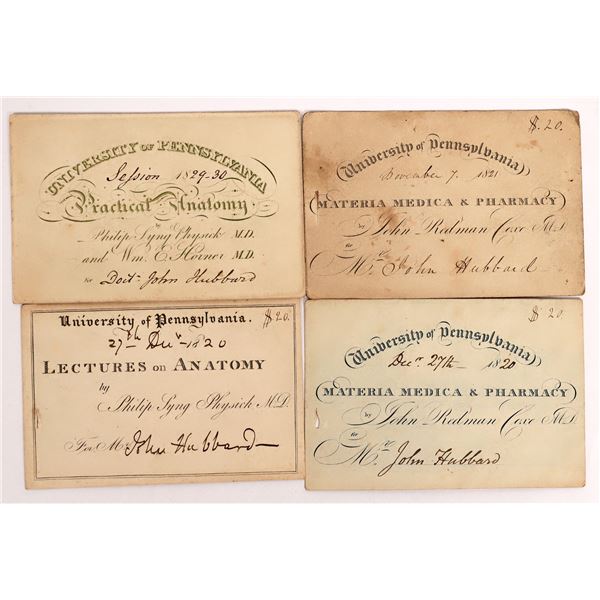 UNIVERSITY OF PENNSYLVANIA
Session 1829-30
Practical Anatomy
by
Philip Syng Physick M.D.
and Wm. E. Horner M.D.
for Doctr John Hubbard
$.20.
University of Pennsylvania
November 7. 1821
MATERIA MEDICA & PHARMACY
by John Redman Coxe M.D.
for
Mr. John Hubbard
University of Pennsylvania. $20.
27th Decr 1820
LECTURES ON ANATOMY
by
Philip Syng Physick M.D.
For Mr John Hubbard
$.20
University of Pennsylvania
Decr 27th 1820
MATERIA MEDICA & PHARMACY
by John Redman Coxe M.D.
for
Mr. John Hubbard